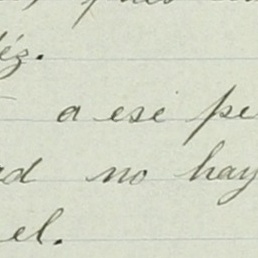 éz.
a ese pe
d no hay
el.